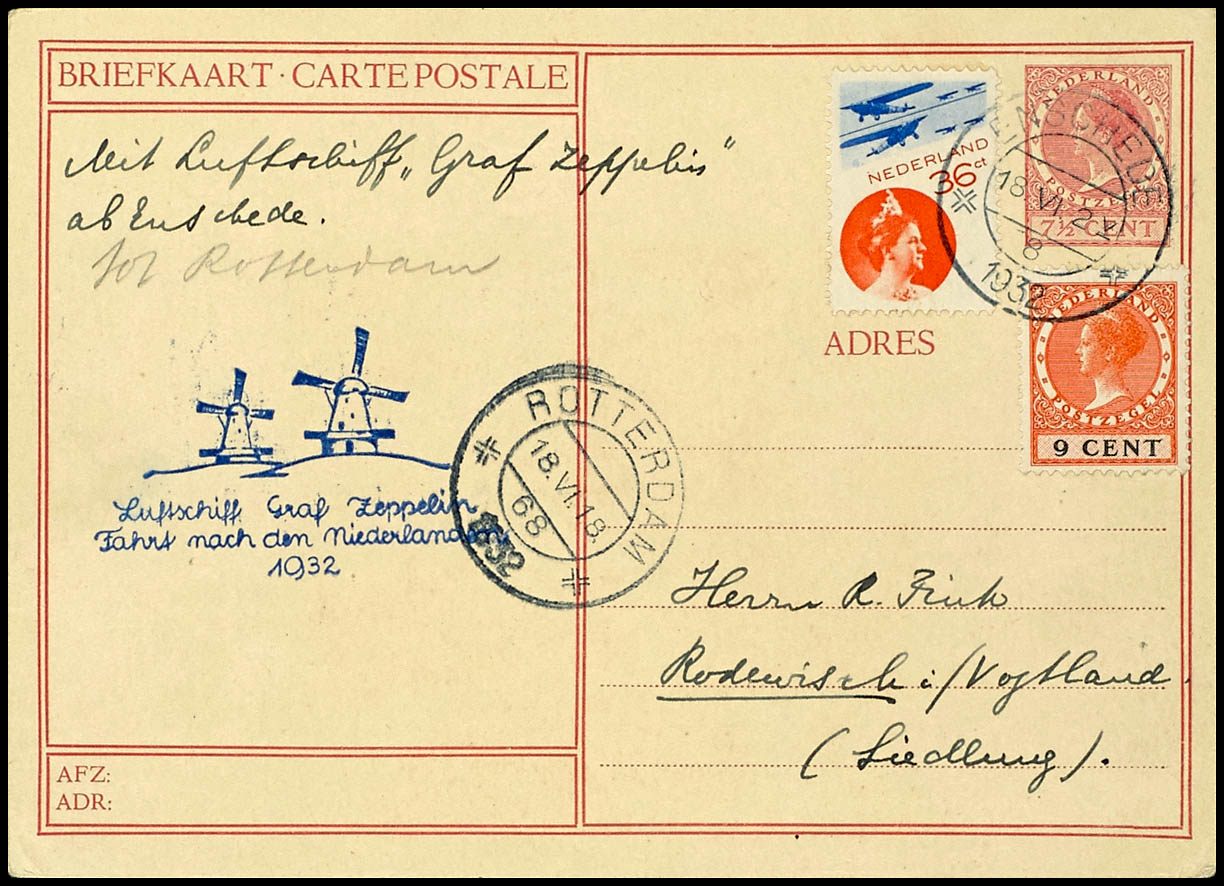 BRIEFKAART · CARTE POSTALE
Mit Luftschiff „Graf Zeppelin"
ab Enschede.
tot Rotterdam
NEDERLAND
36 ct
NEDERLAND
POSTZEGEL
7½ CENT
ENSCHEDE
18.VI.2
8
1932
NEDERLAND
POSTZEGEL
9 CENT
ADRES
ROTTERDAM
18.VI.18.
68
1932
Luftschiff Graf Zeppelin
Fahrt nach den Niederlanden
1932
Herrn R. Fink
Rodewisch i/Vogtland.
(Siedlung).
AFZ:
ADR: